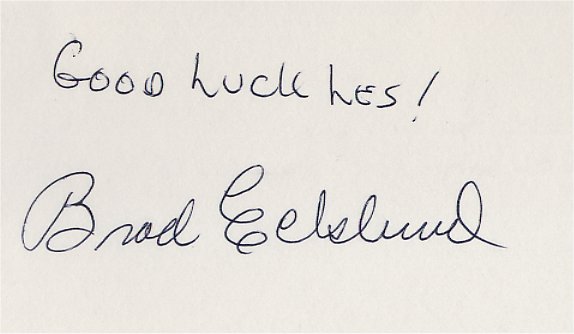 GOOD LUCK LES!
Brad Ecklund